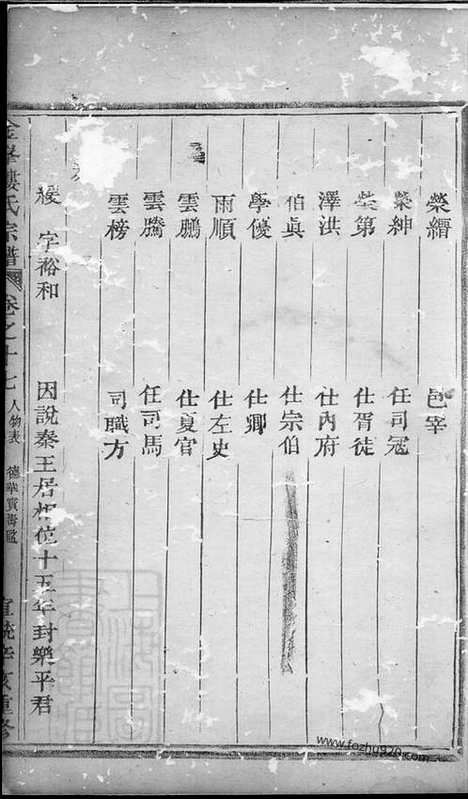 榮縉 邑宰
榮紳 任司冦
榮第 仕胥徒
澤洪 仕內府
伯眞 仕宗伯
學優 仕卿
雨順 仕左史
雲鵬 仕夏官
雲騰 任司馬
雲榜 司職方
緩 字裕和 因說秦王居相位十五年封樂平君
樓氏宗譜 卷之十七 人物表 德華實書
www.fozhu920.com